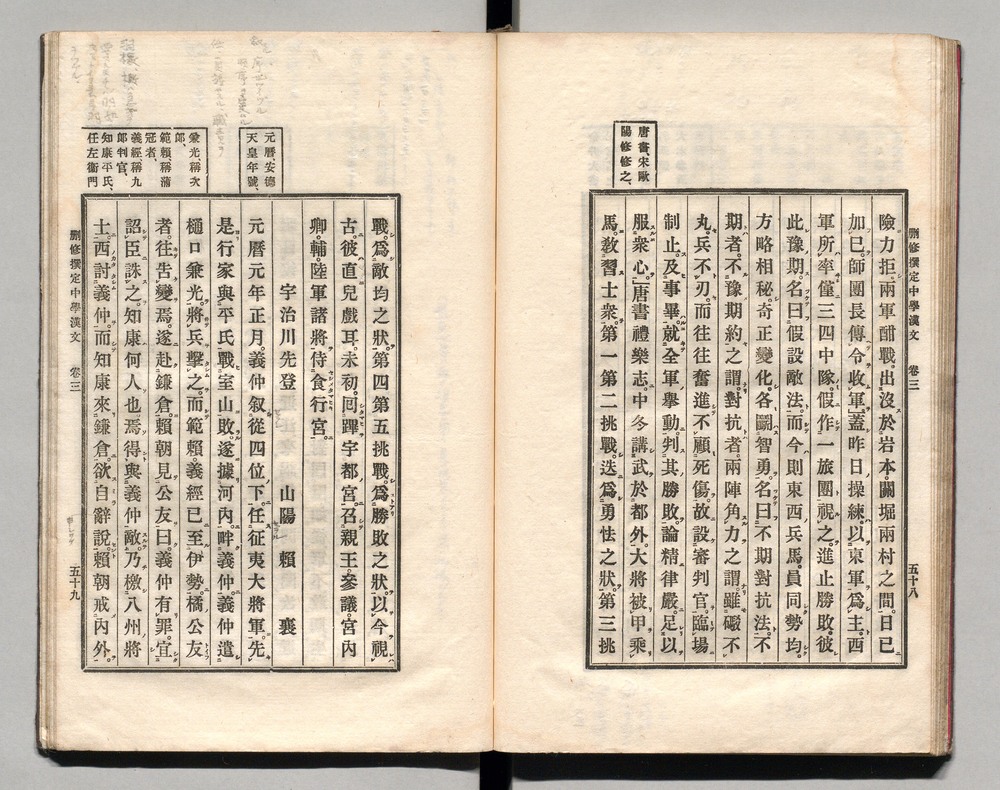 刪修撰定中學漢文　卷三　五十八
唐書、宋歐
陽修修之、
險力拒。兩軍酣戰。出沒於岩本。關堀兩村之間。日已
加巳。師團長傳令收軍。」蓋昨日操練。以東軍爲主。西
軍所率僅三四中隊。假作一旅團視之。進止勝敗。彼
此豫期。名曰假設敵法。而今則東西兵馬。員同勢均。
方略相秘。奇正變化。各鬭智勇。名曰不期對抗法。不
期者。不豫期約之謂。對抗者。兩陣角力之謂。雖礮不
丸。兵不刃。而往往奮進不顧死傷。故設審判官。臨場
制止。及事畢。就全軍舉動。判其勝敗。論精律嚴。足以
服衆心。」唐書禮樂志中。冬講武於都外。大將被甲乘
馬。敎習士衆。第一第二挑戰。迭爲勇怯之狀。第三挑
戰。爲敵均之狀。第四第五挑戰。爲勝敗之狀。以今視
古。彼直兒戲耳。未初。回蹕宇都宮。召親王參議。宮內
卿。輔。陸軍諸將。侍食行宮。
宇治川先登　山陽　賴　襄
元曆安德
天皇年號、
元曆元年正月。義仲叙從四位下。任征夷大將軍。先
是行家與平氏戰室山敗。遂據河內。畔義仲。義仲遣
兼光稱次
郞、
範賴稱蒲
冠者、
義經稱九
郞判官、
知康平氏、
任左衞門
樋口兼光。將兵擊之。而範賴義經已至伊勢。橘公友
者。往吿變焉。遂赴鎌倉。賴朝見公友曰。義仲有罪。宜
詔臣誅之。知康何人也。焉得與義仲敵。乃檄八州將
士。西討義仲。而知康來鎌倉。欲自辭說。賴朝戒內外。
刪修撰定中學漢文　卷三　五十九